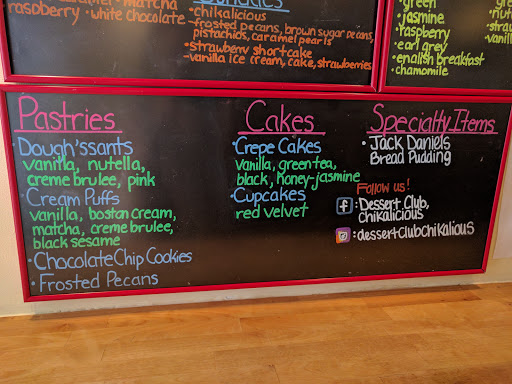 matcha
raspberry · white chocolate
• chikalicious
- frosted pecans, brown sugar pecans, pistachios, caramel pearls
- strawberry shortcake
- vanilla ice cream, cake, strawberries
• green
• jasmine
• raspberry
• earl grey
• english breakfast
• chamomile
Pastries
• Dough'ssants
vanilla, nutella,
creme brulee, pink
• Cream Puffs
vanilla, boston cream,
matcha, creme brulee,
black sesame
• Chocolate Chip Cookies
• Frosted Pecans
Cakes
• Crepe Cakes
Vanilla, green tea,
black, honey-jasmine
• Cupcakes
red velvet
Specialty Items
• Jack Daniels
Bread Pudding
Follow us!
f : Dessert Club,
Chikalicious
: dessertclubchikalious